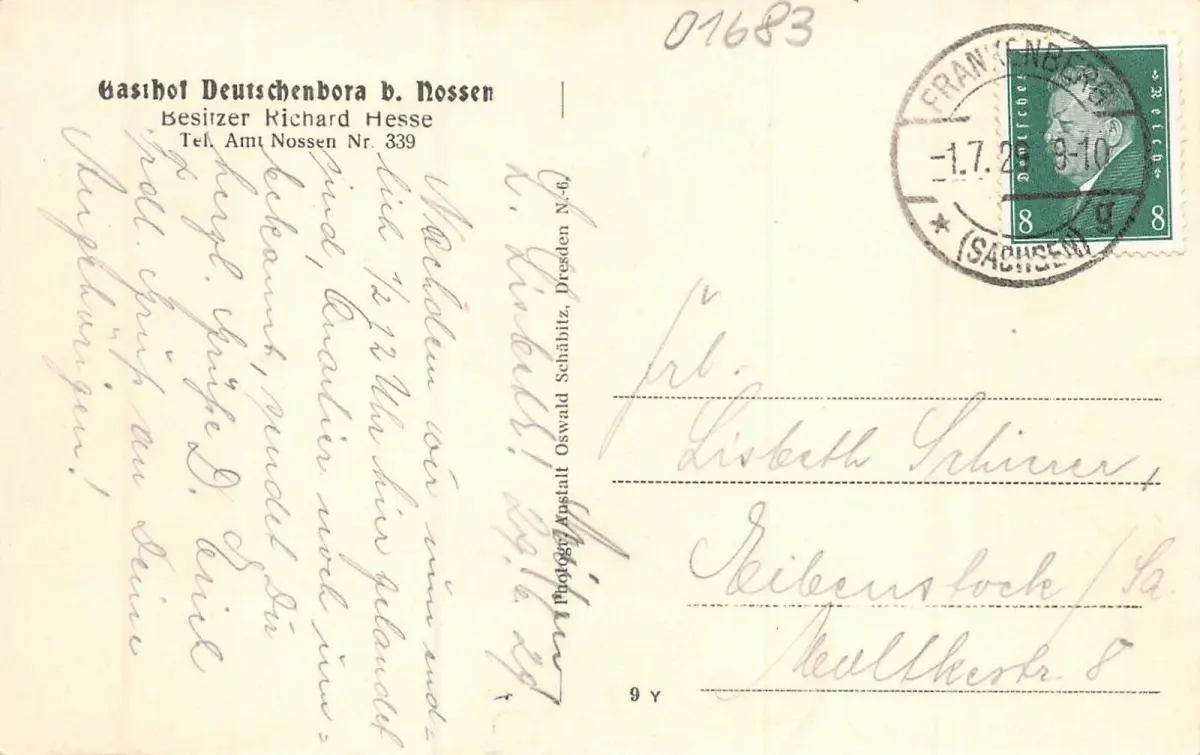 01683
Gasthof Deutschenbora b. Nossen
Besitzer Richard Hesse
Tel. Amt Nossen Nr. 339
FRANKENBERG
-1.7.29 9-10
* (SACHSEN) g
Deutsches Reich
8 8
Photogr. Anstalt Oswald Schäbitz, Dresden N-6.
L. Lisbeth! 29./6. 29
Nachdem wir nun end-
lich ½ 12 Uhr hier gelandet
sind, Quartier noch un-
bekannt, sendet Dir
herzl. Grüße D. Erich
Frdl. Gruß an Deine
Angehörigen!
Frl.
Lisbeth
Eibenstock / Sa.
Moltkestr. 8
9 Y